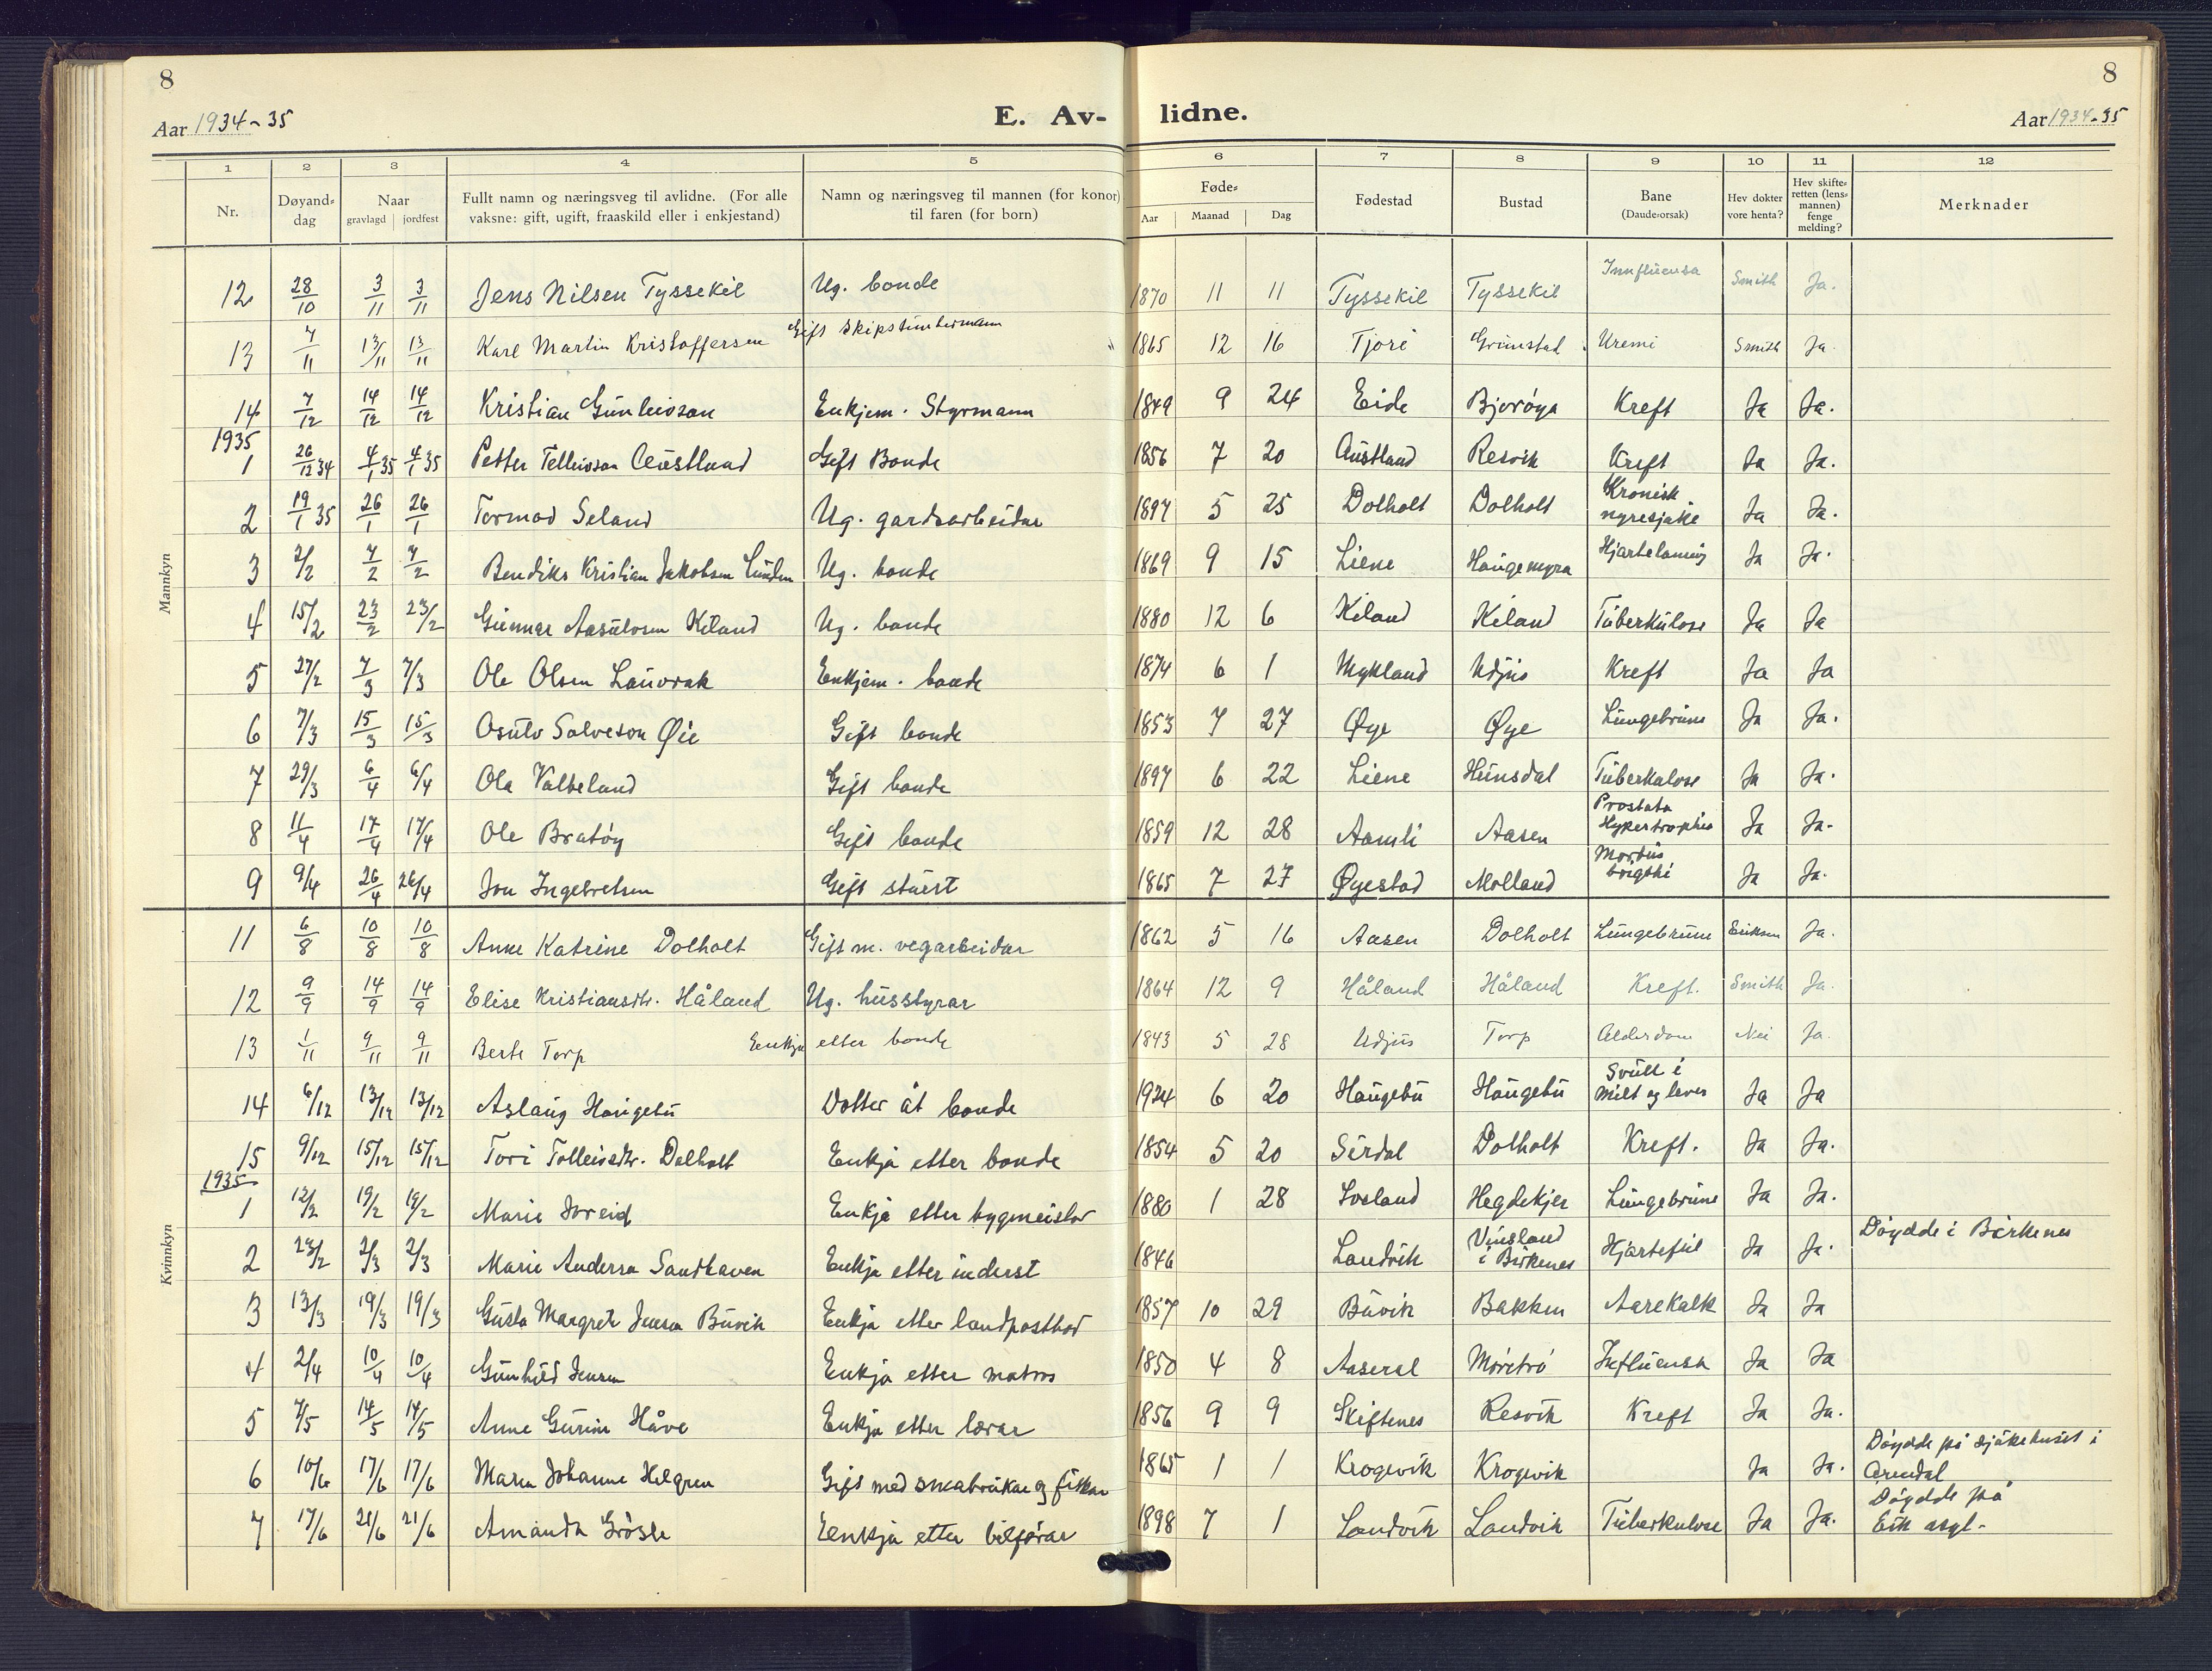 8
8
Aar 1934-35
E. Av-
lidne.
Aar 1934-35
1 2 3 4 5 6 7 8 9 10 11 12
Nr. Døyand-dag Naar gravlagd jordfest Fullt namn og næringsveg til avlidne. (For alle vaksne: gift, ugift, fraaskild eller i enkjestand) Namn og næringsveg til mannen (for konor) til faren (for born) Føde- Aar Maanad Dag Fødestad Bustad Bane (Daude-orsak) Hev dokter vore henta? Hev skifte-retten (lens-mannen) fenge melding? Merknader
Mannkyn
12 28/10 3/11 3/11 Jens Nilsen Tyssekil Ug. bonde 1870 11 11 Tyssekil Tyssekil Innfluensa Smith Ja.
13 7/11 13/11 13/11 Karl Martin Kristoffersen Gift skipstimbermann 1865 12 16 Tjore Grimstad Uremi Smith Ja.
14 7/12 14/12 14/12 Kristian Gunleivson Enkjem. Styrmann 1849 9 24 Eide Bjorøya Kreft Ja Ja.
1935
1 26/12 34 4/1 35 4/1 35 Petter Telleivson Austland Gift Bonde 1856 7 20 Austland Resvik Kreft Ja Ja.
2 19/1 35 26/1 26/1 Tormod Seland Ug. gardsarbeidar 1897 5 25 Dolholt Dolholt Kronisk nyresjuke Ja Ja.
3 2/2 7/2 7/2 Bendiks Kristian Jakobsen Lunden Ug. bonde 1869 9 15 Liene Haugemyra Hjartelaming Ja Ja.
4 15/2 23/2 23/2 Gunnar Aasulvsen Kiland Ug. bonde 1880 12 6 Kiland Kiland Tuberkulose Ja Ja
5 27/2 7/3 7/3 Ole Olsen Lauvrak Enkjem. bonde 1874 6 1 Mykland Udjus Kreft Ja Ja
6 7/3 15/3 15/3 Osulv Salveson Øie Gift bonde 1853 7 27 Øye Øye Lungebrune Ja Ja.
7 29/3 6/4 6/4 Ola Valbeland Gift bonde 1897 6 22 Liene Hunsdal Tuberkulose Ja Ja.
8 11/4 17/4 17/4 Ole Bratøy Gift bonde 1859 12 28 Aamli Aasen Prostata Hypertrophie Ja Ja.
9 9/4 26/4 26/4 Jon Ingebretsen Gift stuert 1865 7 27 Øyestad Molland Morbus brigthi Ja Ja.
Kvinnkyn
11 6/8 10/8 10/8 Anne Katrine Dolholt Gift m. vegarbeidar 1862 5 16 Aasen Dolholt Lungebrune Eriksen Ja.
12 9/9 14/9 14/9 Elise Kristiansdtr. Håland Ug. husstyrar 1864 12 9 Håland Håland Kreft. Smith Ja.
13 1/11 9/11 9/11 Berte Torp Enkja etter bonde 1843 5 28 Udjus Torp Alderdom Nei Ja.
14 6/12 13/12 13/12 Aslaug Haugebu Dotter åt bonde 1934 6 20 Haugebu Haugebu Svull i Milt og lever Ja Ja
15 9/12 15/12 15/12 Tori Tolleivsdtr. Dolholt Enkja etter bonde 1854 5 20 Sirdal Dolholt Kreft. Ja Ja.
1935
1 12/2 19/2 19/2 Marie Joreid Enkja etter bygmeistar 1880 1 28 Iveland Hegdekjer Lungebrune Ja Ja.
2 23/2 2/3 2/3 Marie Andersen Sandhaven Enkja etter inderst 1846 Landvik Vinsland i Birkenes Hjartefeil Ja Ja. Døydde i Birkenes
3 13/3 19/3 19/3 Gusta Margrete Jensen Buvik Enkja etter landpostbod 1857 10 29 Buvik Bakken Aarekalk Ja Ja
4 2/4 10/4 10/4 Gunhild Jensen Enkja etter matros 1850 4 8 Aaseral Møretrø Influensa Ja Ja
5 7/5 14/5 14/5 Anne Gurine Håve Enkja etter lærar 1856 9 9 Skiftenes Resvik Kreft Ja Ja.
6 10/6 17/6 17/6 Maren Johanne Helgren Gift med småbrukar og fiskar 1865 1 1 Krogevik Krogevik Ja Ja. Døydde på sjukehuset i Arendal
7 17/6 21/6 21/6 Amanda Grøsle Eenkja etter bilførar 1898 7 1 Landvik Landvik Tuberkulose Ja Ja. Døydde på Eik asyl.